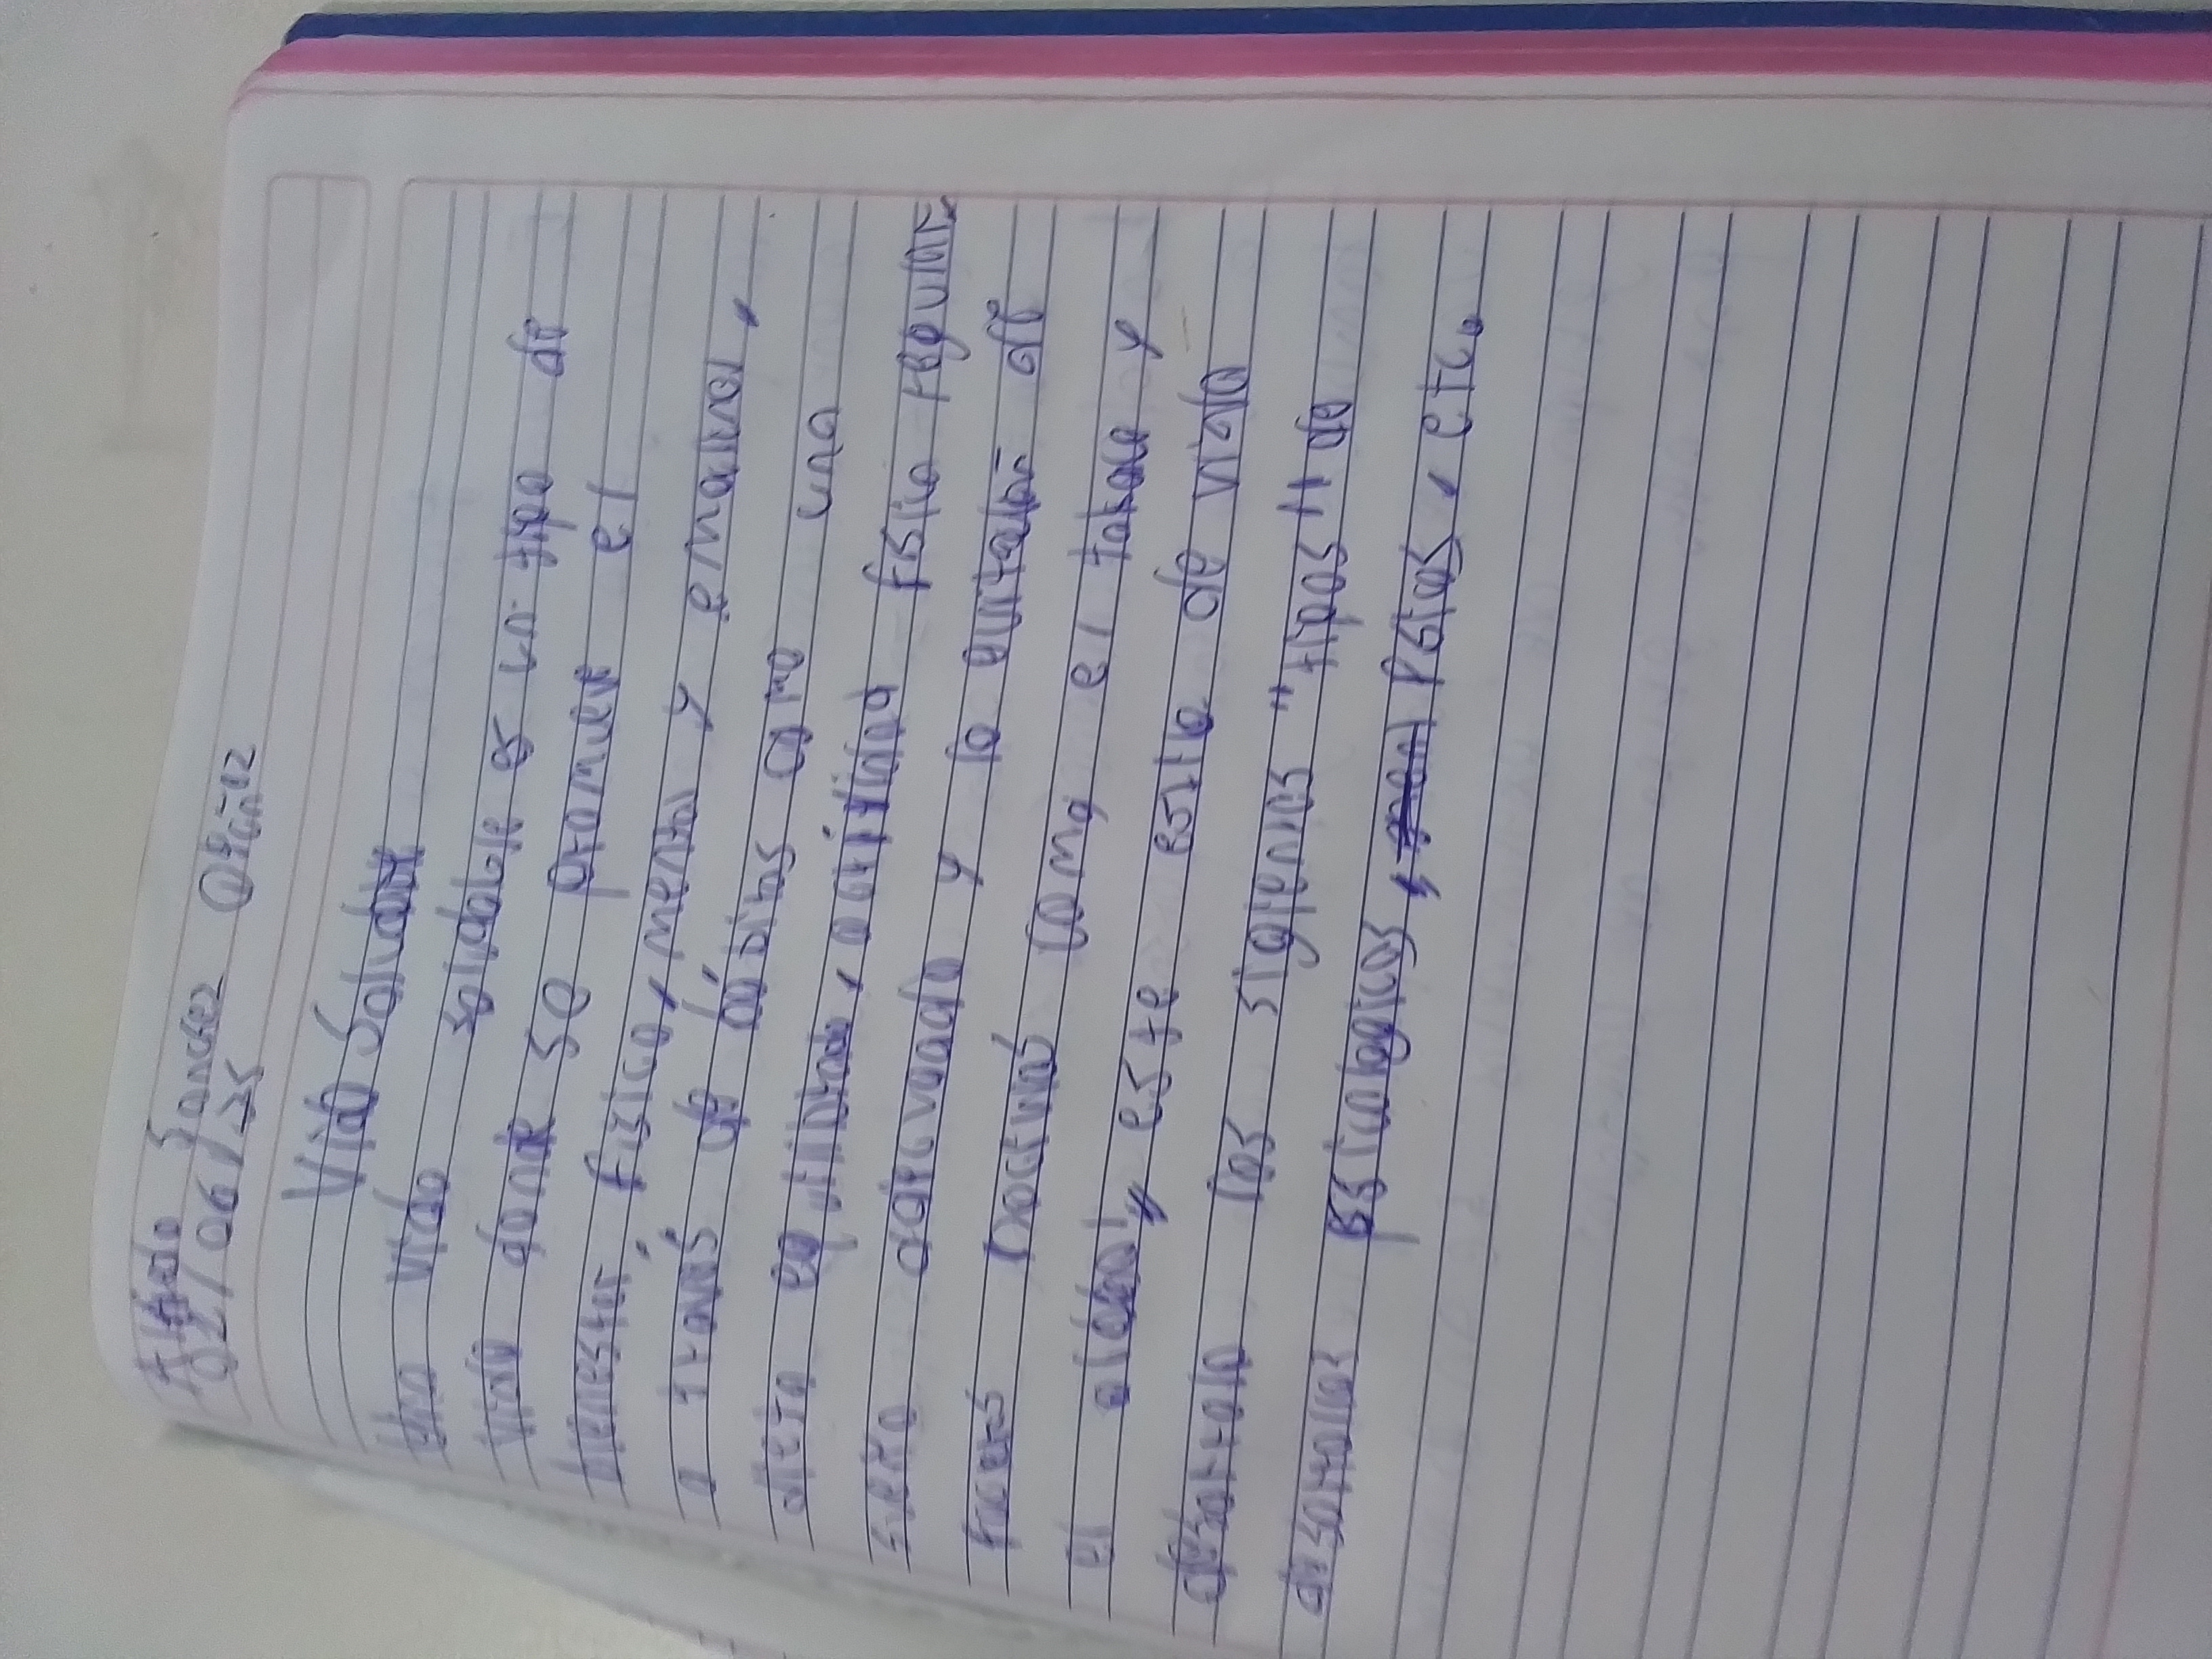 Sanchez
02/06/25
Vida Saludable
Una vida saldable es un tipo de
vida donde se promueve el
bienestar fisico, mental y emocional,
a través de hábitos como una
dieta equilibrada, actividad fisica regular
sueño adecuado y la
nocivas como el tabaco y
el alcohol, este estilo de vida
desarrolo los sigienies "tipos" de
desarrollos psicologicos, etc.